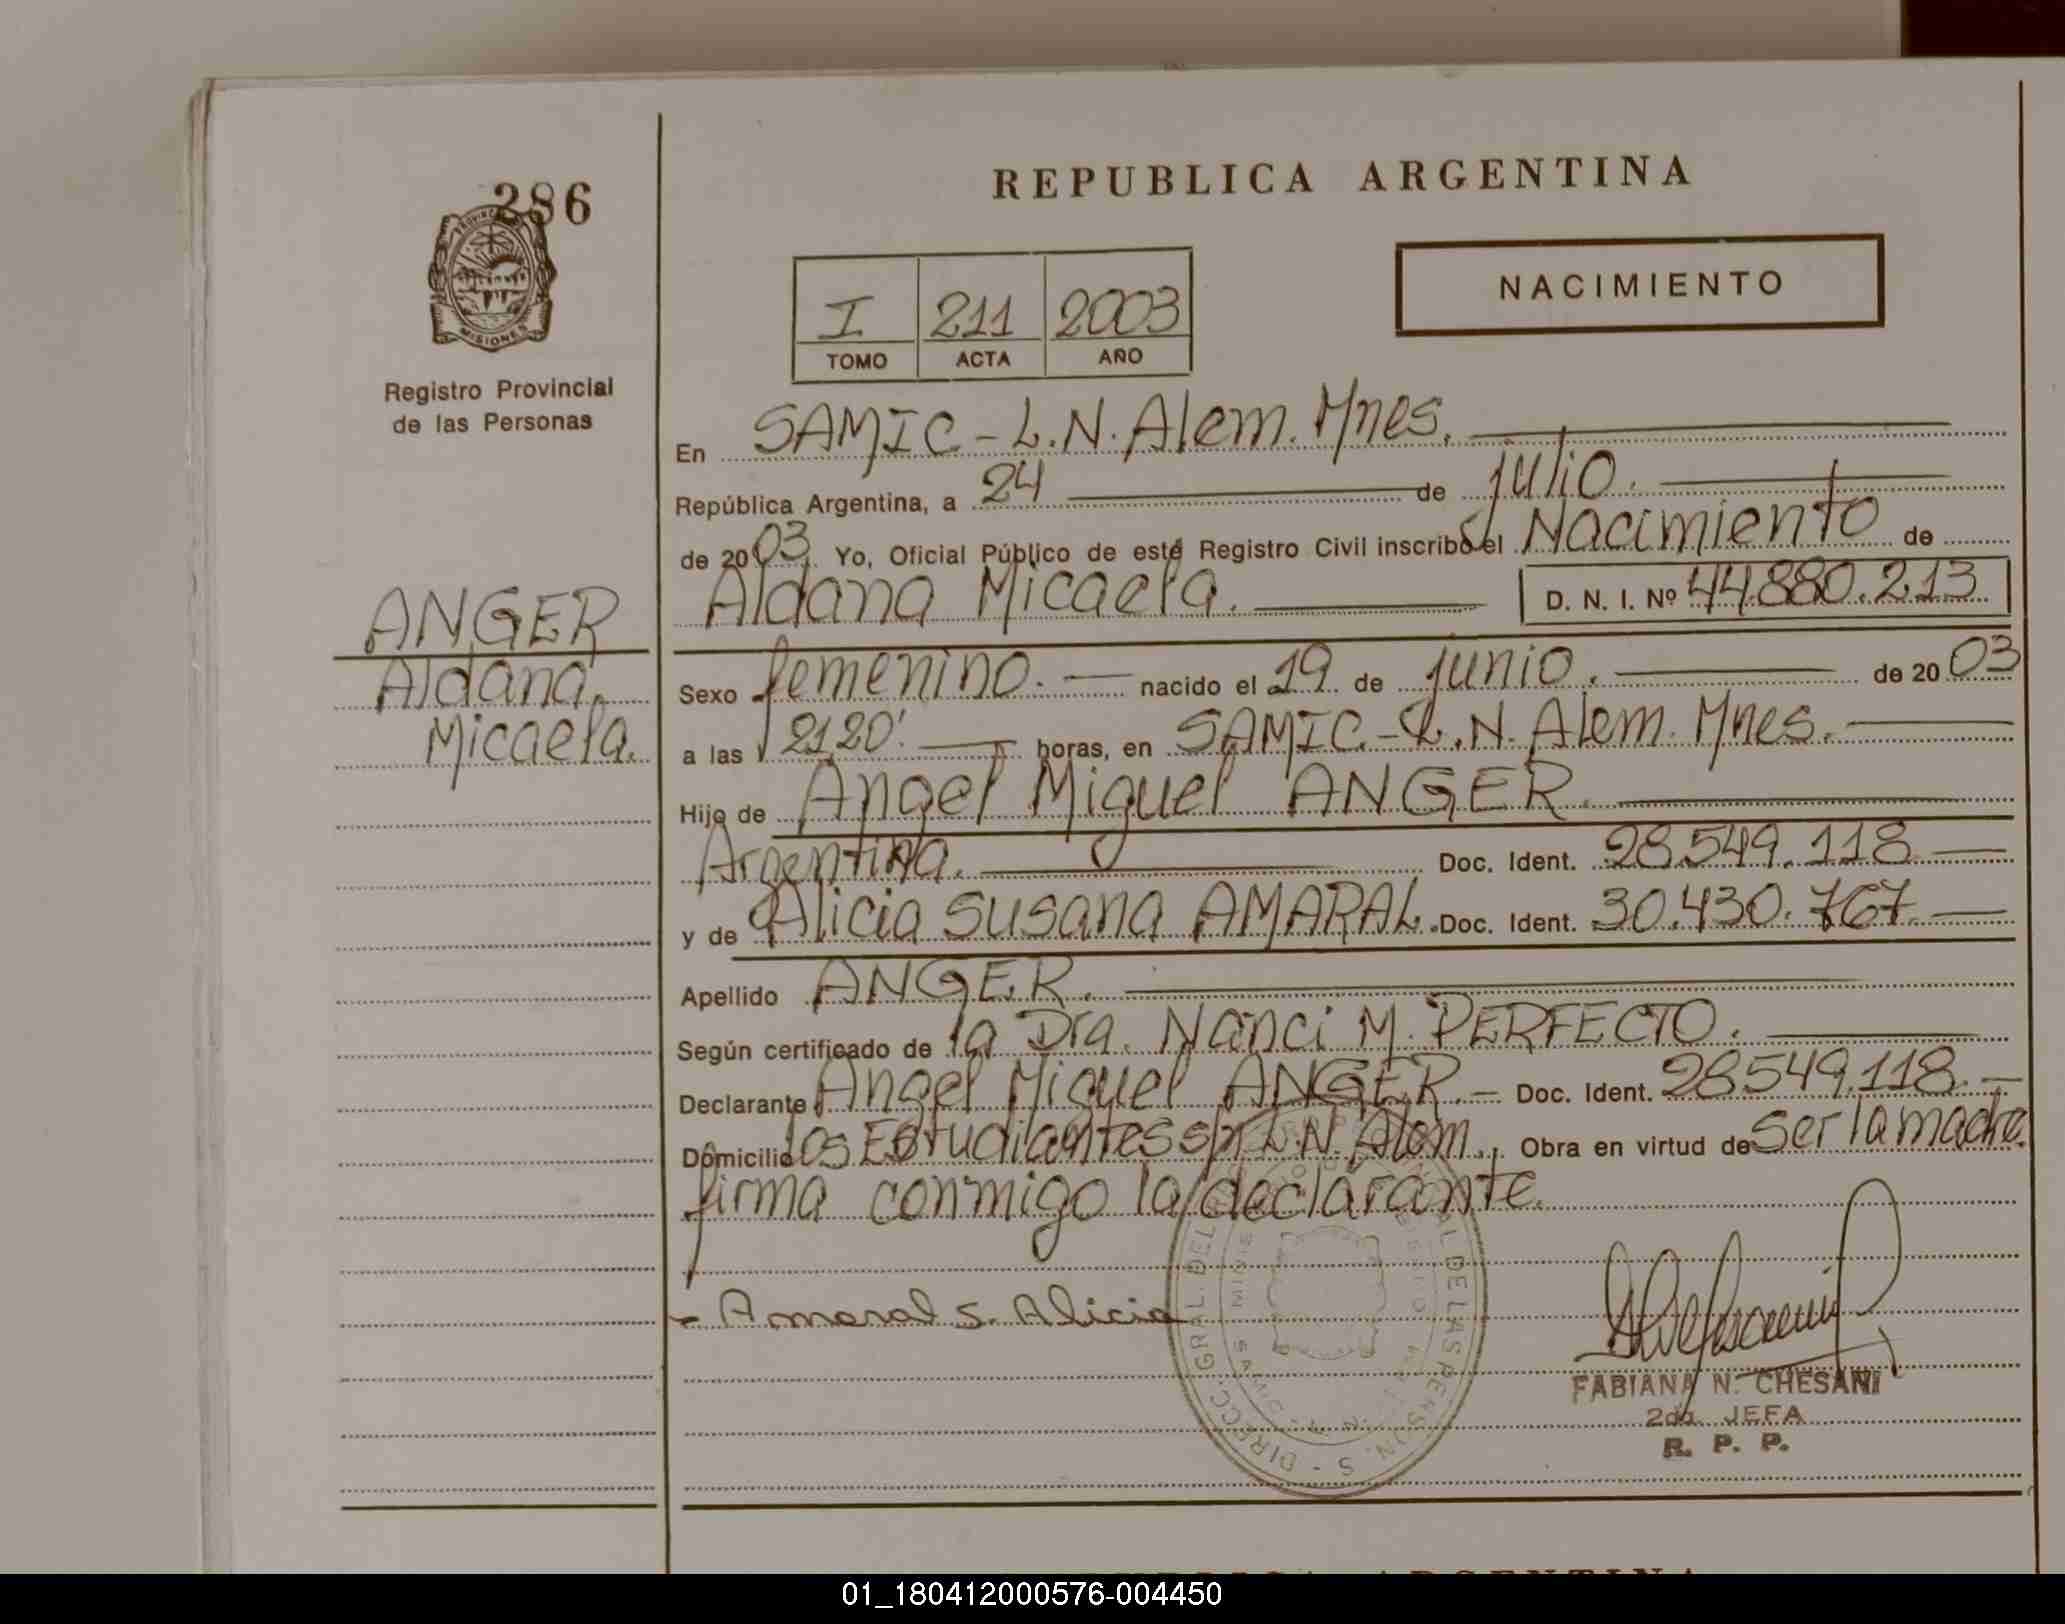 286
PROVINCIA
MISIONES
Registro Provincial
de las Personas
REPUBLICA ARGENTINA
NACIMIENTO
I 211 2003
TOMO ACTA AÑO
En SAMIC - L.N. Alem. Mnes.
República Argentina, a 24 de julio.
de 2003. Yo, Oficial Público de este Registro Civil inscribo el Nacimiento de
Aldana Micaela. D. N. I. Nº 44.880.213
ANGER
Aldana
Micaela.
Sexo femenino. nacido el 19 de junio. de 2003
a las 21,20' horas, en SAMIC - L.N. Alem. Mnes.
Hijo de Angel Miguel ANGER.
Argentina. Doc. Ident. 28.549.118
y de Alicia Susana AMARAL. Doc. Ident. 30.430.767
Apellido ANGER.
Según certificado de la Dra. Nanci M. PERFECTO.
Declarante Angel Miguel ANGER. Doc. Ident. 28.549.118.
Domicilio los Estudiantes s/n L.N. Alem. Obra en virtud de Ser la madre.
firma conmigo la declarante.
- Amaral S. Alicia
FABIANA N. CHESANI
2da. JEFA
R. P. P.
01_180412000576-004450